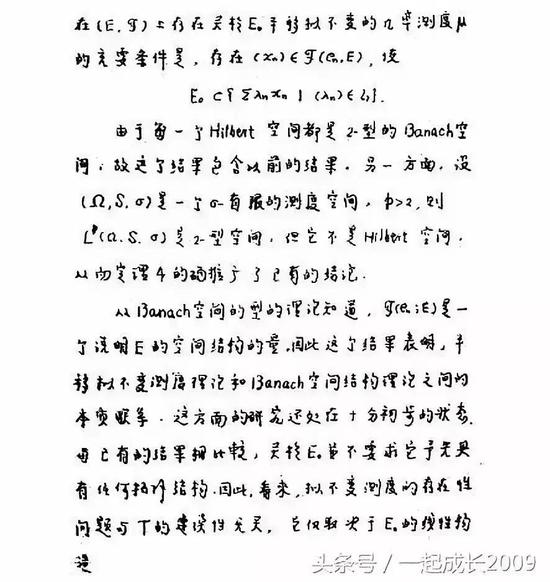 在(E,𝒯)上存在关于E₀平移拟不变的几率测度μ
的充要条件是,存在(xₙ)∈𝒯(eₙ,E),使
E₀⊂{∑λₙxₙ|(λₙ)∈l₂}.
由于每一个Hilbert空间都是2-型的Banach空
间,故这个结果包含以前的结果.另一方面,设
(Ω,S,σ)是一个σ-有限的测度空间,p>2,则
Lᵖ(Ω.S.σ)是2-型空间,但它不是Hilbert空间.
从而定理4的确推广了已有的结论.
从Banach空间的型的理论知道,𝒯(eₙ;E)是一
个说明E的空间结构的量.因此这个结果表明,平
移拟不变测度理论和Banach空间结构理论之间的
本质联系.这方面的研究还处在十分初步的状态.
与已有的结果相比较,关于E₀并不要求它予先具
有任何拓扑结构.因此,看来,拟不变测度的存在性
问题与T的建设性无关,它仅取决于E₀的线性构
造
头条号/一起成长2009